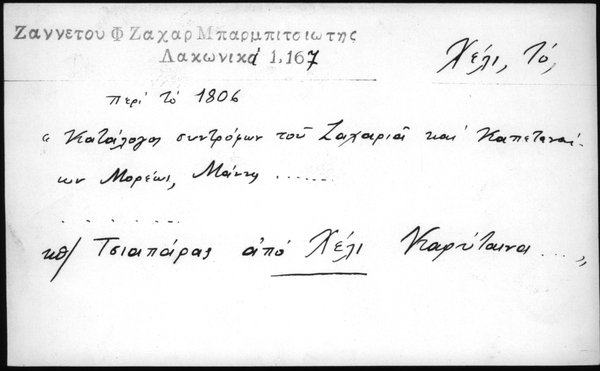 Ζαννετου Φ Ζαχαρ Μπαρμπιτσιωτης
Λακωνικά 1.167
Χέλι, τό,
περί τό 1806
" Κατάλογος συντρόμων τοῦ Ζαχαριᾶ καί Καπεταναί-
ων Μορέως, Μάνης ......
. . . . . .
κθ/ Τσιαπάρας ἀπό Χέλι Καρύταινα ... "